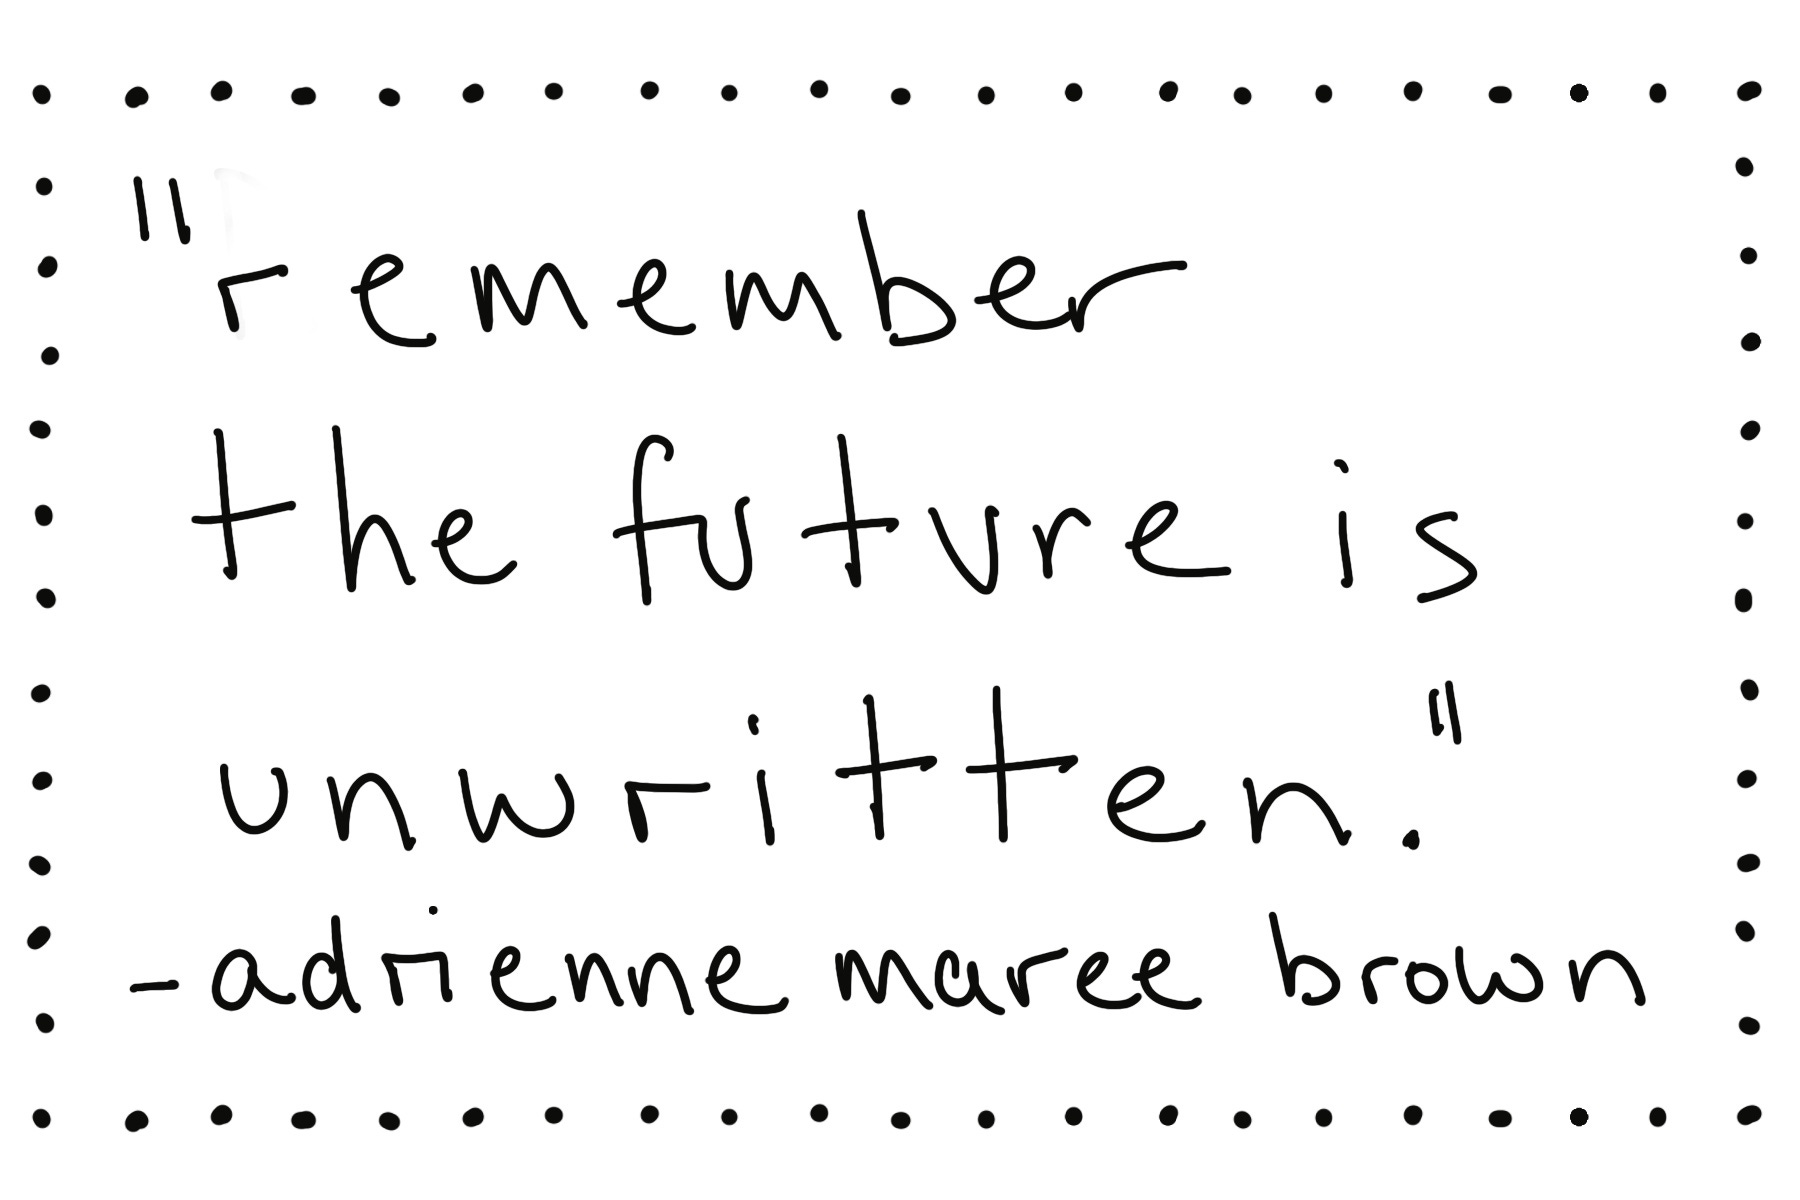 "remember
the future is
unwritten."
-adrienne maree brown